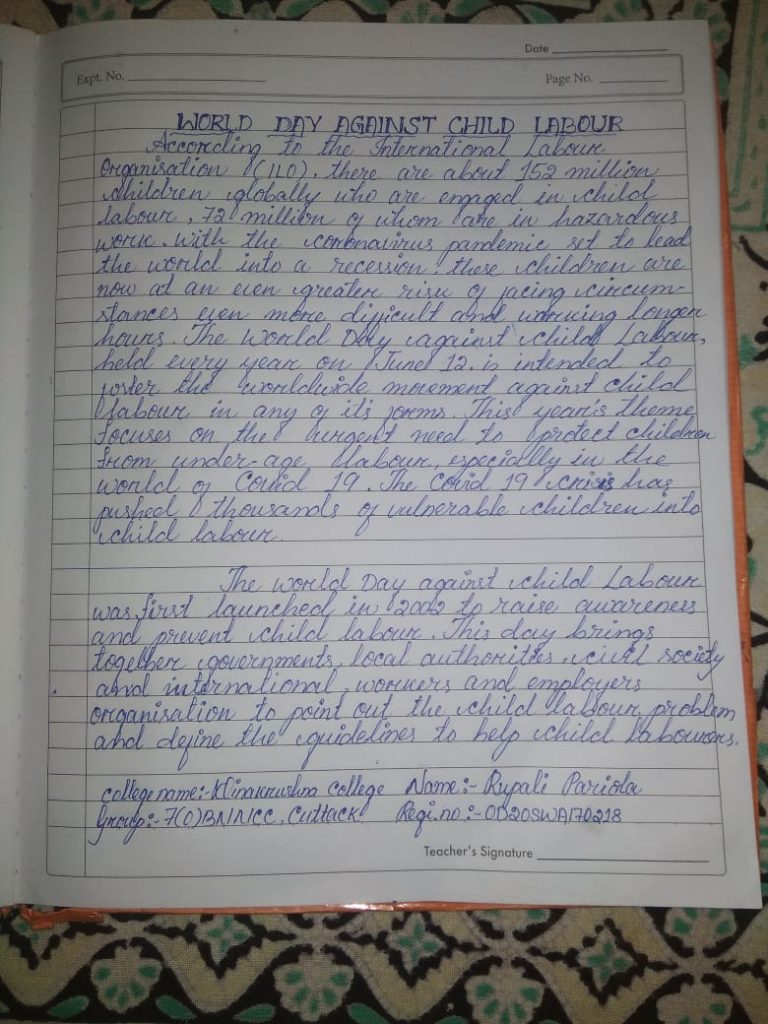 Date
Expt. No.
Page No.
WORLD DAY AGAINST CHILD LABOUR
According to the International Labour
Organisation (ILO), there are about 152 million
children globally who are engaged in child
labour, 72 million of whom are in hazardous
work. With the coronavirus pandemic set to lead
the world into a recession, these children are
now at an even greater risk of facing circum-
stances even more difficult and working longer
hours. The World Day against child Labour,
held every year on June 12, is intended to
foster the worldwide movement against child
labour in any of it's forms. This year's theme
focuses on the urgent need to protect children
from under-age labour, especially in the
world of Covid 19. The Covid 19 crisis has
pushed thousands of vulnerable children into
child labour.
The world Day against child Labour
was first launched in 2002 to raise awareness
and prevent child labour. This day brings
together governments, local authorities, civil society
and international, workers and employers
organisation to point out the child labour problem
and define the guidelines to help child labourers.
college name:- college Name:- Rupali Pariola
Group:- 7(O)BN NCC, Cuttack Regi.no:- OD20SWA170218
Teacher's Signature